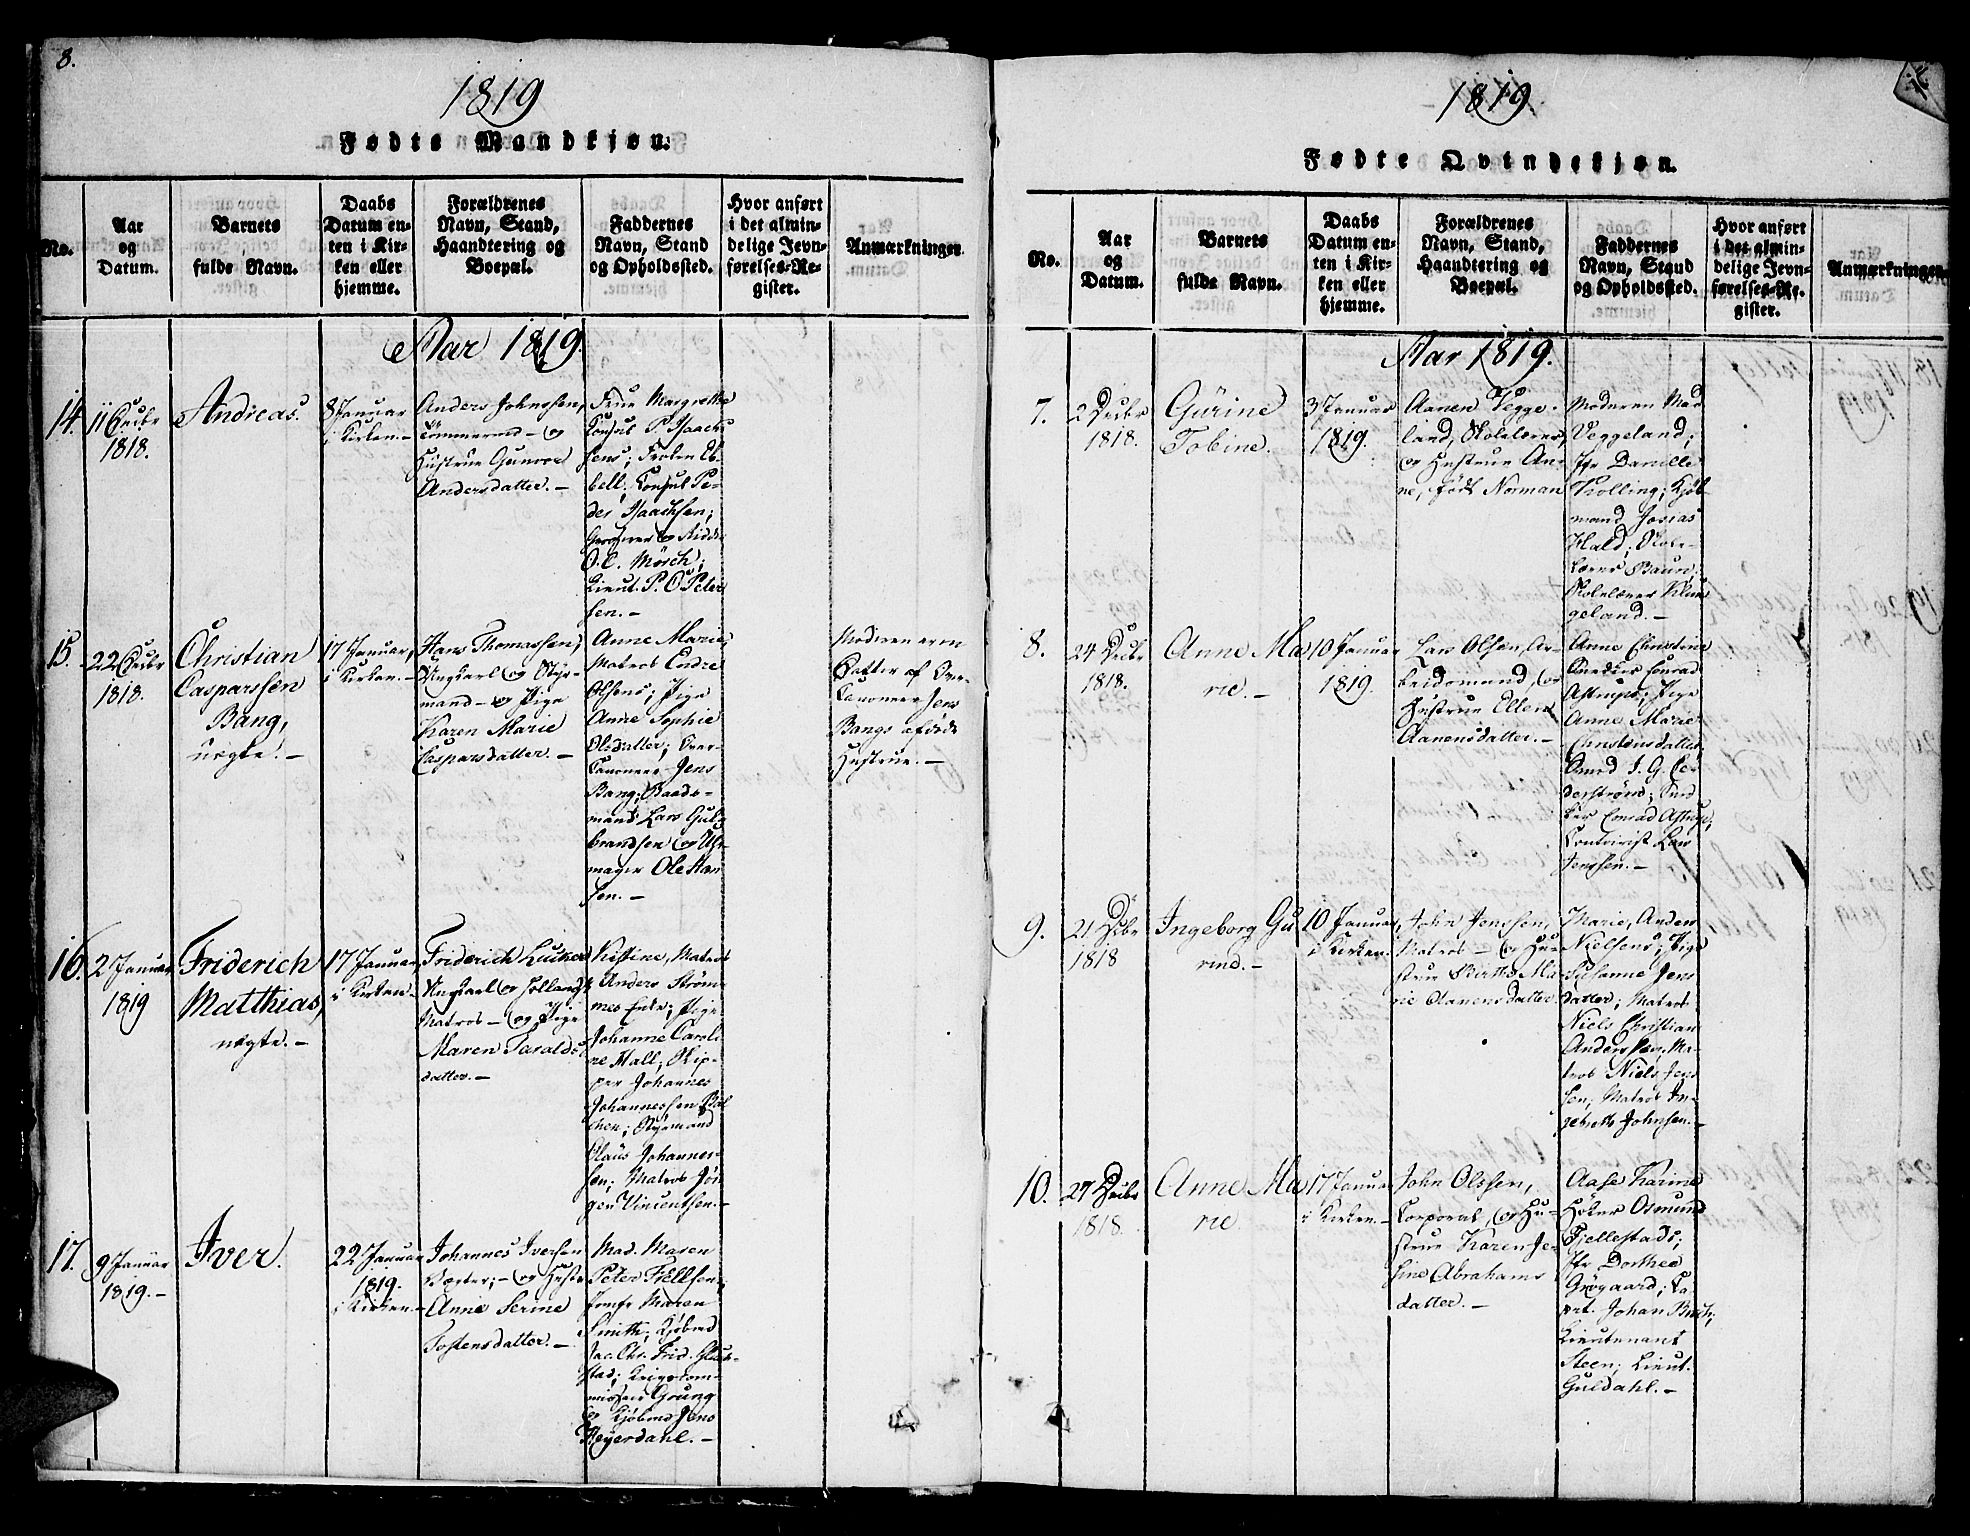 8.
1819
Fødte Mandkjøn.
No.
Aar
og
Datum.
Barnets
fulde Navn.
Daabs
Datum en-
ten i Kir-
ken eller
hjemme.
Forældrenes
Navn, Stand,
Haandtering og
Boepæl.
Faddernes
Navn, Stand
og Opholdssted.
Hvor anført
i det almin-
delige Jevn-
førelses-Re-
gister.
Anmærkninger.
Aar 1819.
14.
11 Decbr
1818.
Andreas.
8 Januar
i Kirken.-
Anders Johnssen,
Tømmermd - og
Hustrue Gunvor
Andersdatter. -
Frue Margrethe
Consul P. Isaach-
sens; Frøken Eb-
bell; Consul Pe-
der Isaachsen;
og Ridder
O. C. Mörch;
Lieut. P. C. Peter-
sen. -
15.
22 Decbr
1818.
Christian
Casparssen
Bang,
uægte. -
17 Januar,
i Kirken. -
Hans Thomassen,
Ungkarl og Styr-
mand - og Pige
Karen Marie
Caspersdatter. -
Anne Marie,
Matros Endre
Olsens; Pige
Anne Sophie
Olsdatter; Over-
Canoneer Jens
Bang; Baads-
mand Lars Gul-
brandsen og Uhr-
mager Ole Han-
sen. -
Moderen er en
Datter af Over-
Canoneer Jens
Bangs afdøde
Hustrue. -
16.
2 Januar
1819
Friderich
Matthias,
uægte. -
17 Januar,
i Kirken -
Friderich
Ungkarl og
Matros - og Pige
Maren Taralds-
datter. -
Kistine, Matros
Anders Ström-
mes Enke; Pige
Johanne Caroli-
ne Hall; Skip-
per Johannes
Johannessen
Styrmand
Claüs Johannes-
sen; Matros Jör-
gen Vincentsen. -
17.
9 Januar
1819. -
Iver.
22 Januar
1819.
i Kirken. -
Johannes Iversen
- og Hustr
Anne Serine
Tostensdatter. -
Mad. Maren
Peter Fiellsens;
Jomfr Maren
Smith; Kjøbmd
Jac. Chr. Frid. Gluk-
stad; Krigscom-
missair Grüng
og Kjøbmd Jens
Heyerdahl. -
1819.
Fødte Qvindekjøn.
No.
Aar
og
Datum.
Barnets
fulde Navn.
Daabs
Datum en-
ten i Kir-
ken eller
hjemme.
Forældrenes
Navn, Stand,
Haandtering og
Boepæl.
Faddernes
Navn, Stand
og Opholdssted.
Hvor anført
i det almin-
delige Jevn-
førelses-Re-
gister.
Anmærkninger.
Aar 1819.
7.
2 Decbr
1818.
Gürine
Tobine.
3 Januar
1819.
Aanen Vegge-
land, Skolelærer,
og Hustrue An-
ne, født Norman
Moderen Mad
Veggeland;
Jfr Danille
Trolling; Kjøb-
mand Josias
Hald; Skole-
lærer Baun;
Skolelærer Klun-
geland. -
8.
24 Decbr
1818.
Anne Ma-
rie. -
10 Januar
1819.
Lars Olsen, Ar-
beidsmand, og
Hustrue Ellen
Aanensdatter. -
Anne Christine
Conrad
Astrups; Pige
Anne Marie
Christensdatter;
Smed J. G. Ce-
derström;
Conrad Astrup;
Contoirist Lars
Jenssen. -
9.
21 Decbr
1818
Ingeborg Gu-
rine. -
10 Januar,
i Kirken. -
John Jenssen,
Matros - og Hu-
strue Birthe Ma-
rie Aanensdatter.
Marie, Anders
Nielsens; Pige
Susanne Jens-
datter; Matros
Niels Christian
Anderssen; Ma-
tros Niels Jens-
sen; Matros In-
gebreth Johnsen. -
10.
27 Decbr
1818.
Anne Ma-
rie
17 Januar
i Kirken. -
John Olssen,
Corporal, og Hu-
strue Karen Jo-
sine Abrahams-
datter. -
Aase Karine
Höker Osmund
Fjellestads;
Jfr Dorthea
Grögaard; Ca-
pt. Johan Bech;
Lieutenant
Steen; Lieut.
Guldahl. -